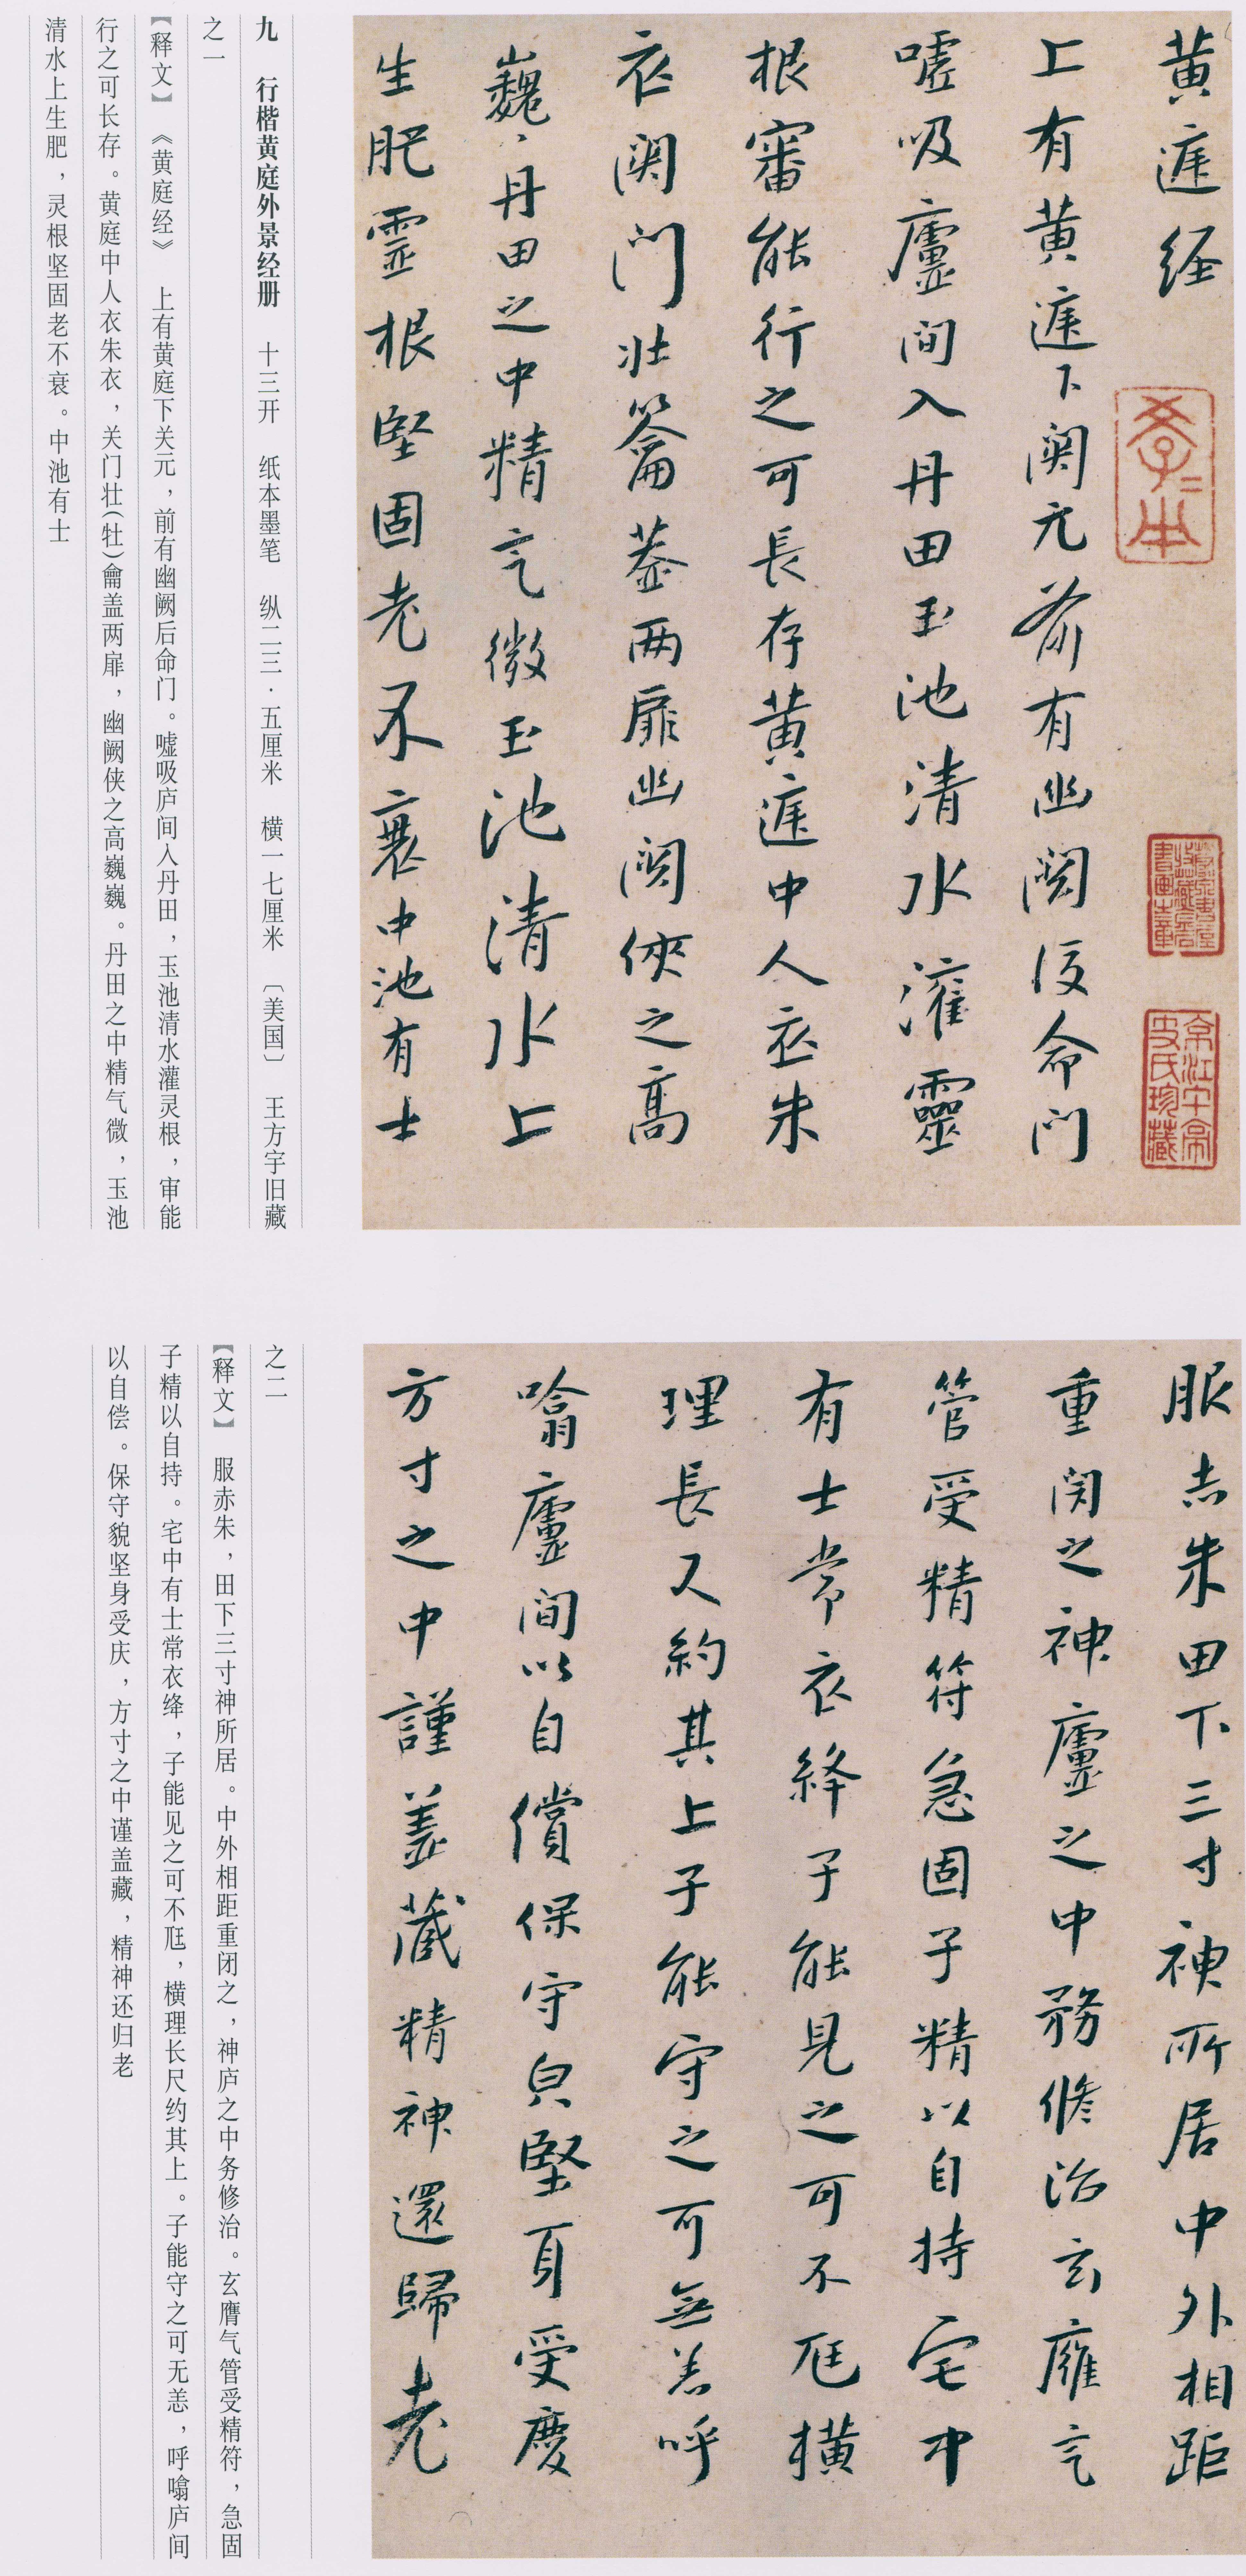 黄庭经
上有黄庭下関元前有幽闕後命門
嘘吸廬間入丹田玉池清水灌靈
根審能行之可長存黄庭中人衣朱
衣関門壮籥葢两扉幽闕俠之高
巍、丹田之中精气微玉池清水上
生肥霊根堅固老不衰中池有士
孝本
京江午亭
史氏珍藏
九 行楷黄庭外景经册 十三开 纸本墨笔 纵二三·五厘米 横一七厘米 〔美国〕 王方宇旧藏
之一
【释文】 《黄庭经》 上有黄庭下关元，前有幽阙后命门。嘘吸庐间入丹田，玉池清水灌灵根，审能
行之可长存。黄庭中人衣朱衣，关门壮(牡)龠盖两扉，幽阙侠之高巍巍。丹田之中精气微，玉池
清水上生肥，灵根坚固老不衰。中池有士
服赤朱田下三寸神所居中外相距
重閉之神廬之中務修治玄膺气
管受精符急固子精以自持宅中
有士常衣絳子能見之可不尫横
理長尺約其上子能守之可無恙呼
噏廬間以自償保守皃堅身受慶
方寸之中謹蓋藏精神還歸老
之二
【释文】 服赤朱，田下三寸神所居。中外相距重闭之，神庐之中务修治。玄膺气管受精符，急固
子精以自持。宅中有士常衣绛，子能见之可不尫，横理长尺约其上。子能守之可无恙，呼噏庐间
以自偿。保守貌坚身受庆，方寸之中谨盖藏，精神还归老